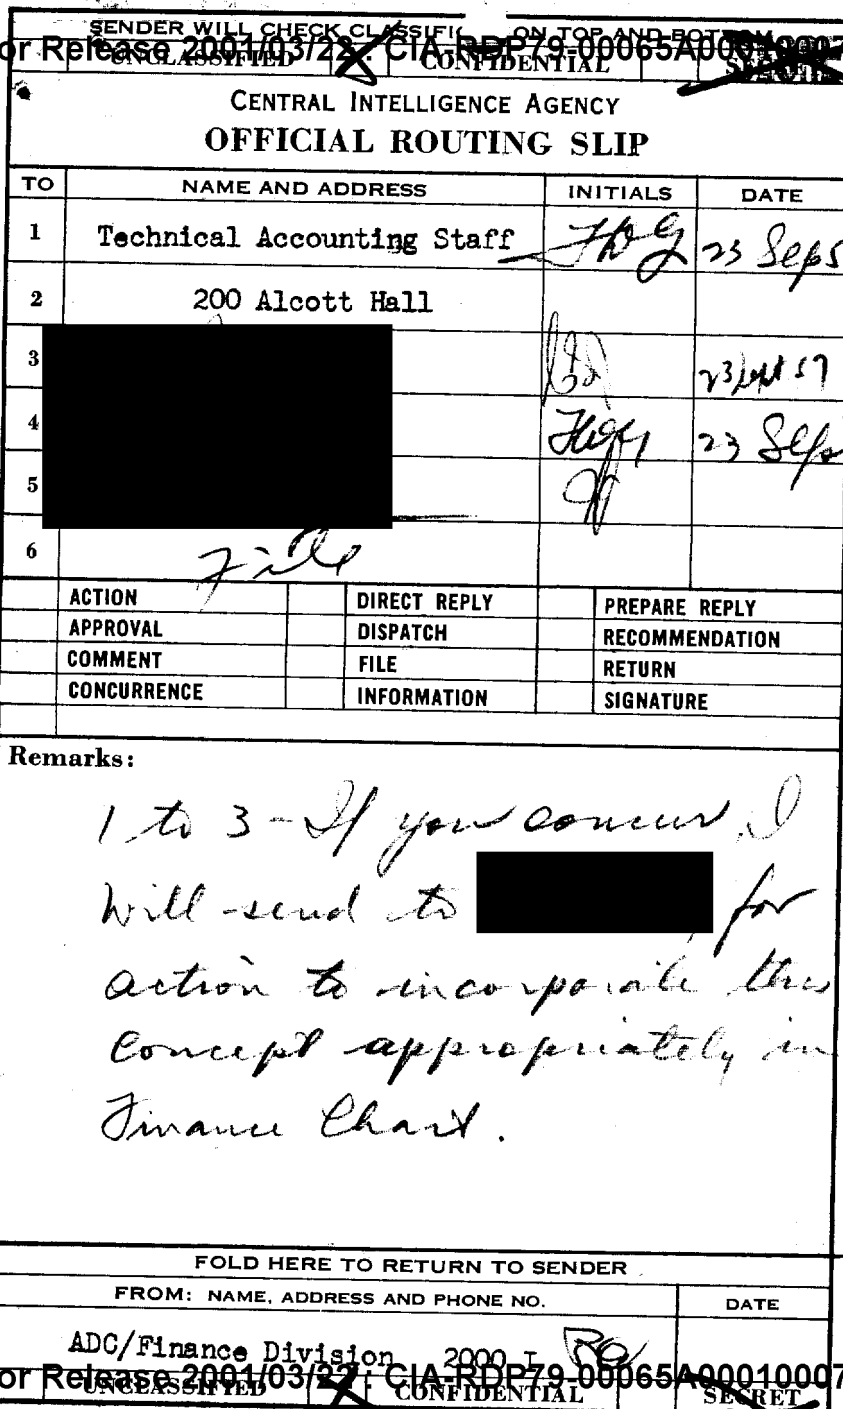 SENDER WILL CHECK CLASSIFI ON TOP AND BOTTOM
or Release 2001/03/22 : CIA-RDP79-00065A00010007
UNCLASSIFIED CONFIDENTIAL SECRET
CENTRAL INTELLIGENCE AGENCY
OFFICIAL ROUTING SLIP
TO NAME AND ADDRESS INITIALS DATE
1 Technical Accounting Staff 23 Sep 5
2 200 Alcott Hall
3 23 Sept 57
4 23 Sep
5
6 File
ACTION DIRECT REPLY PREPARE REPLY
APPROVAL DISPATCH RECOMMENDATION
COMMENT FILE RETURN
CONCURRENCE INFORMATION SIGNATURE
Remarks:
1 to 3 - If you concur, I
will send to for
action to incorporate this
concept appropriately in
Finance Chart.
FOLD HERE TO RETURN TO SENDER
FROM: NAME, ADDRESS AND PHONE NO. DATE
ADC/Finance Division 2000 I
or Release 2001/03/22 : CIA-RDP79-00065A00010007
UNCLASSIFIED CONFIDENTIAL SECRET